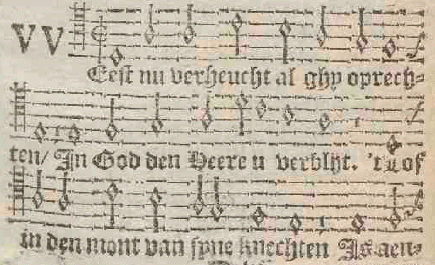 VVEest nu verheucht al ghy oprech-
ten/ In God den Heere u verblijt. 't Lof
in den mont van syne knechten Is aen-